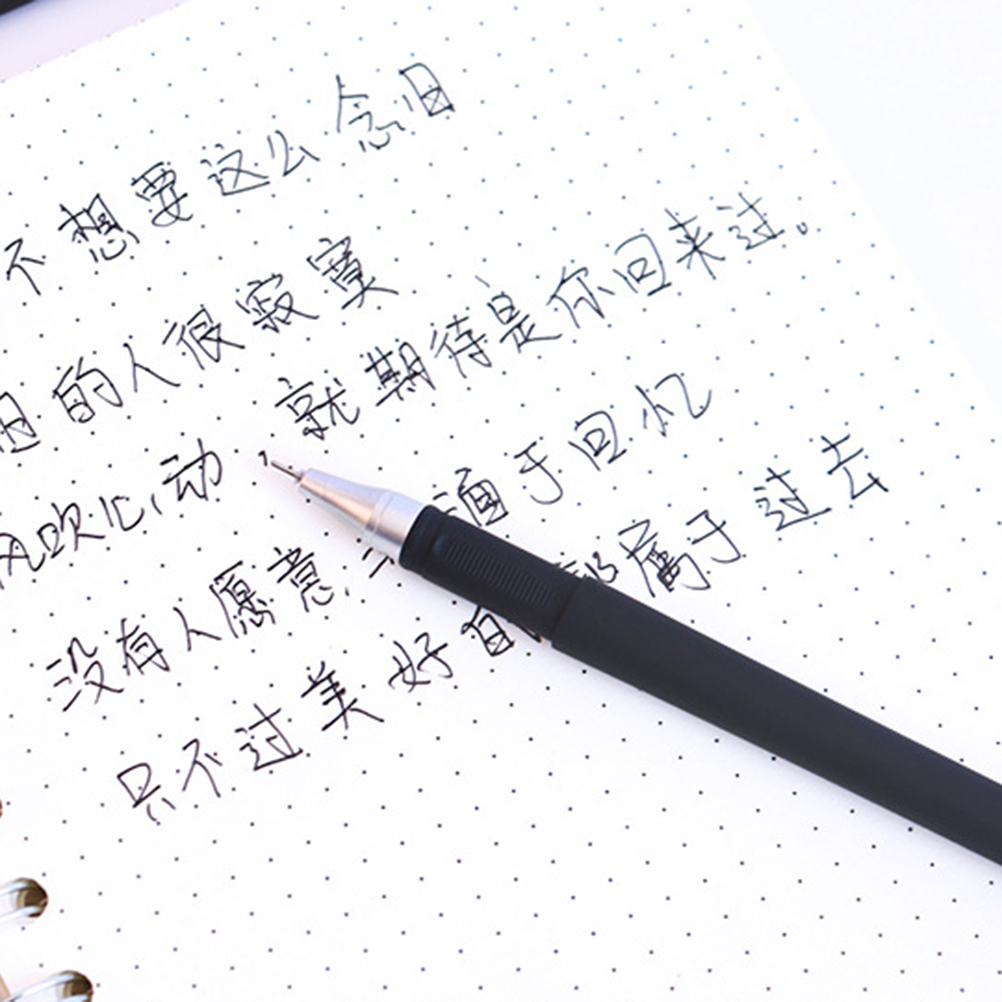 不想要这么念旧
旧的人很寂寞
风吹心动，就期待是你回来过。
没有人愿意 于回忆
只不过美好的都属于过去